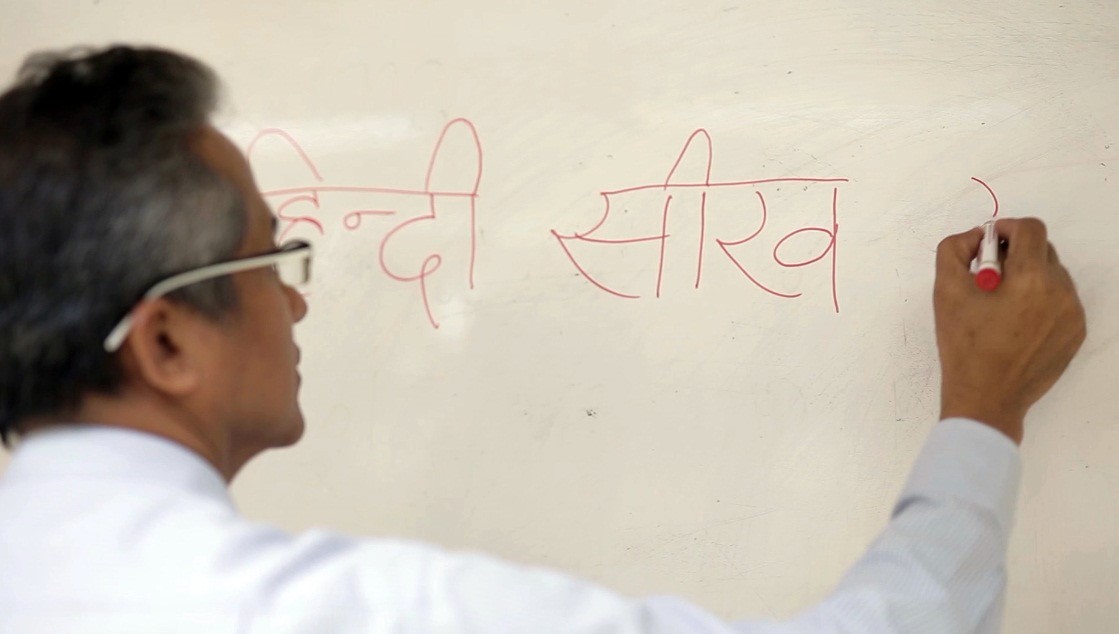 हिन्दी सीख